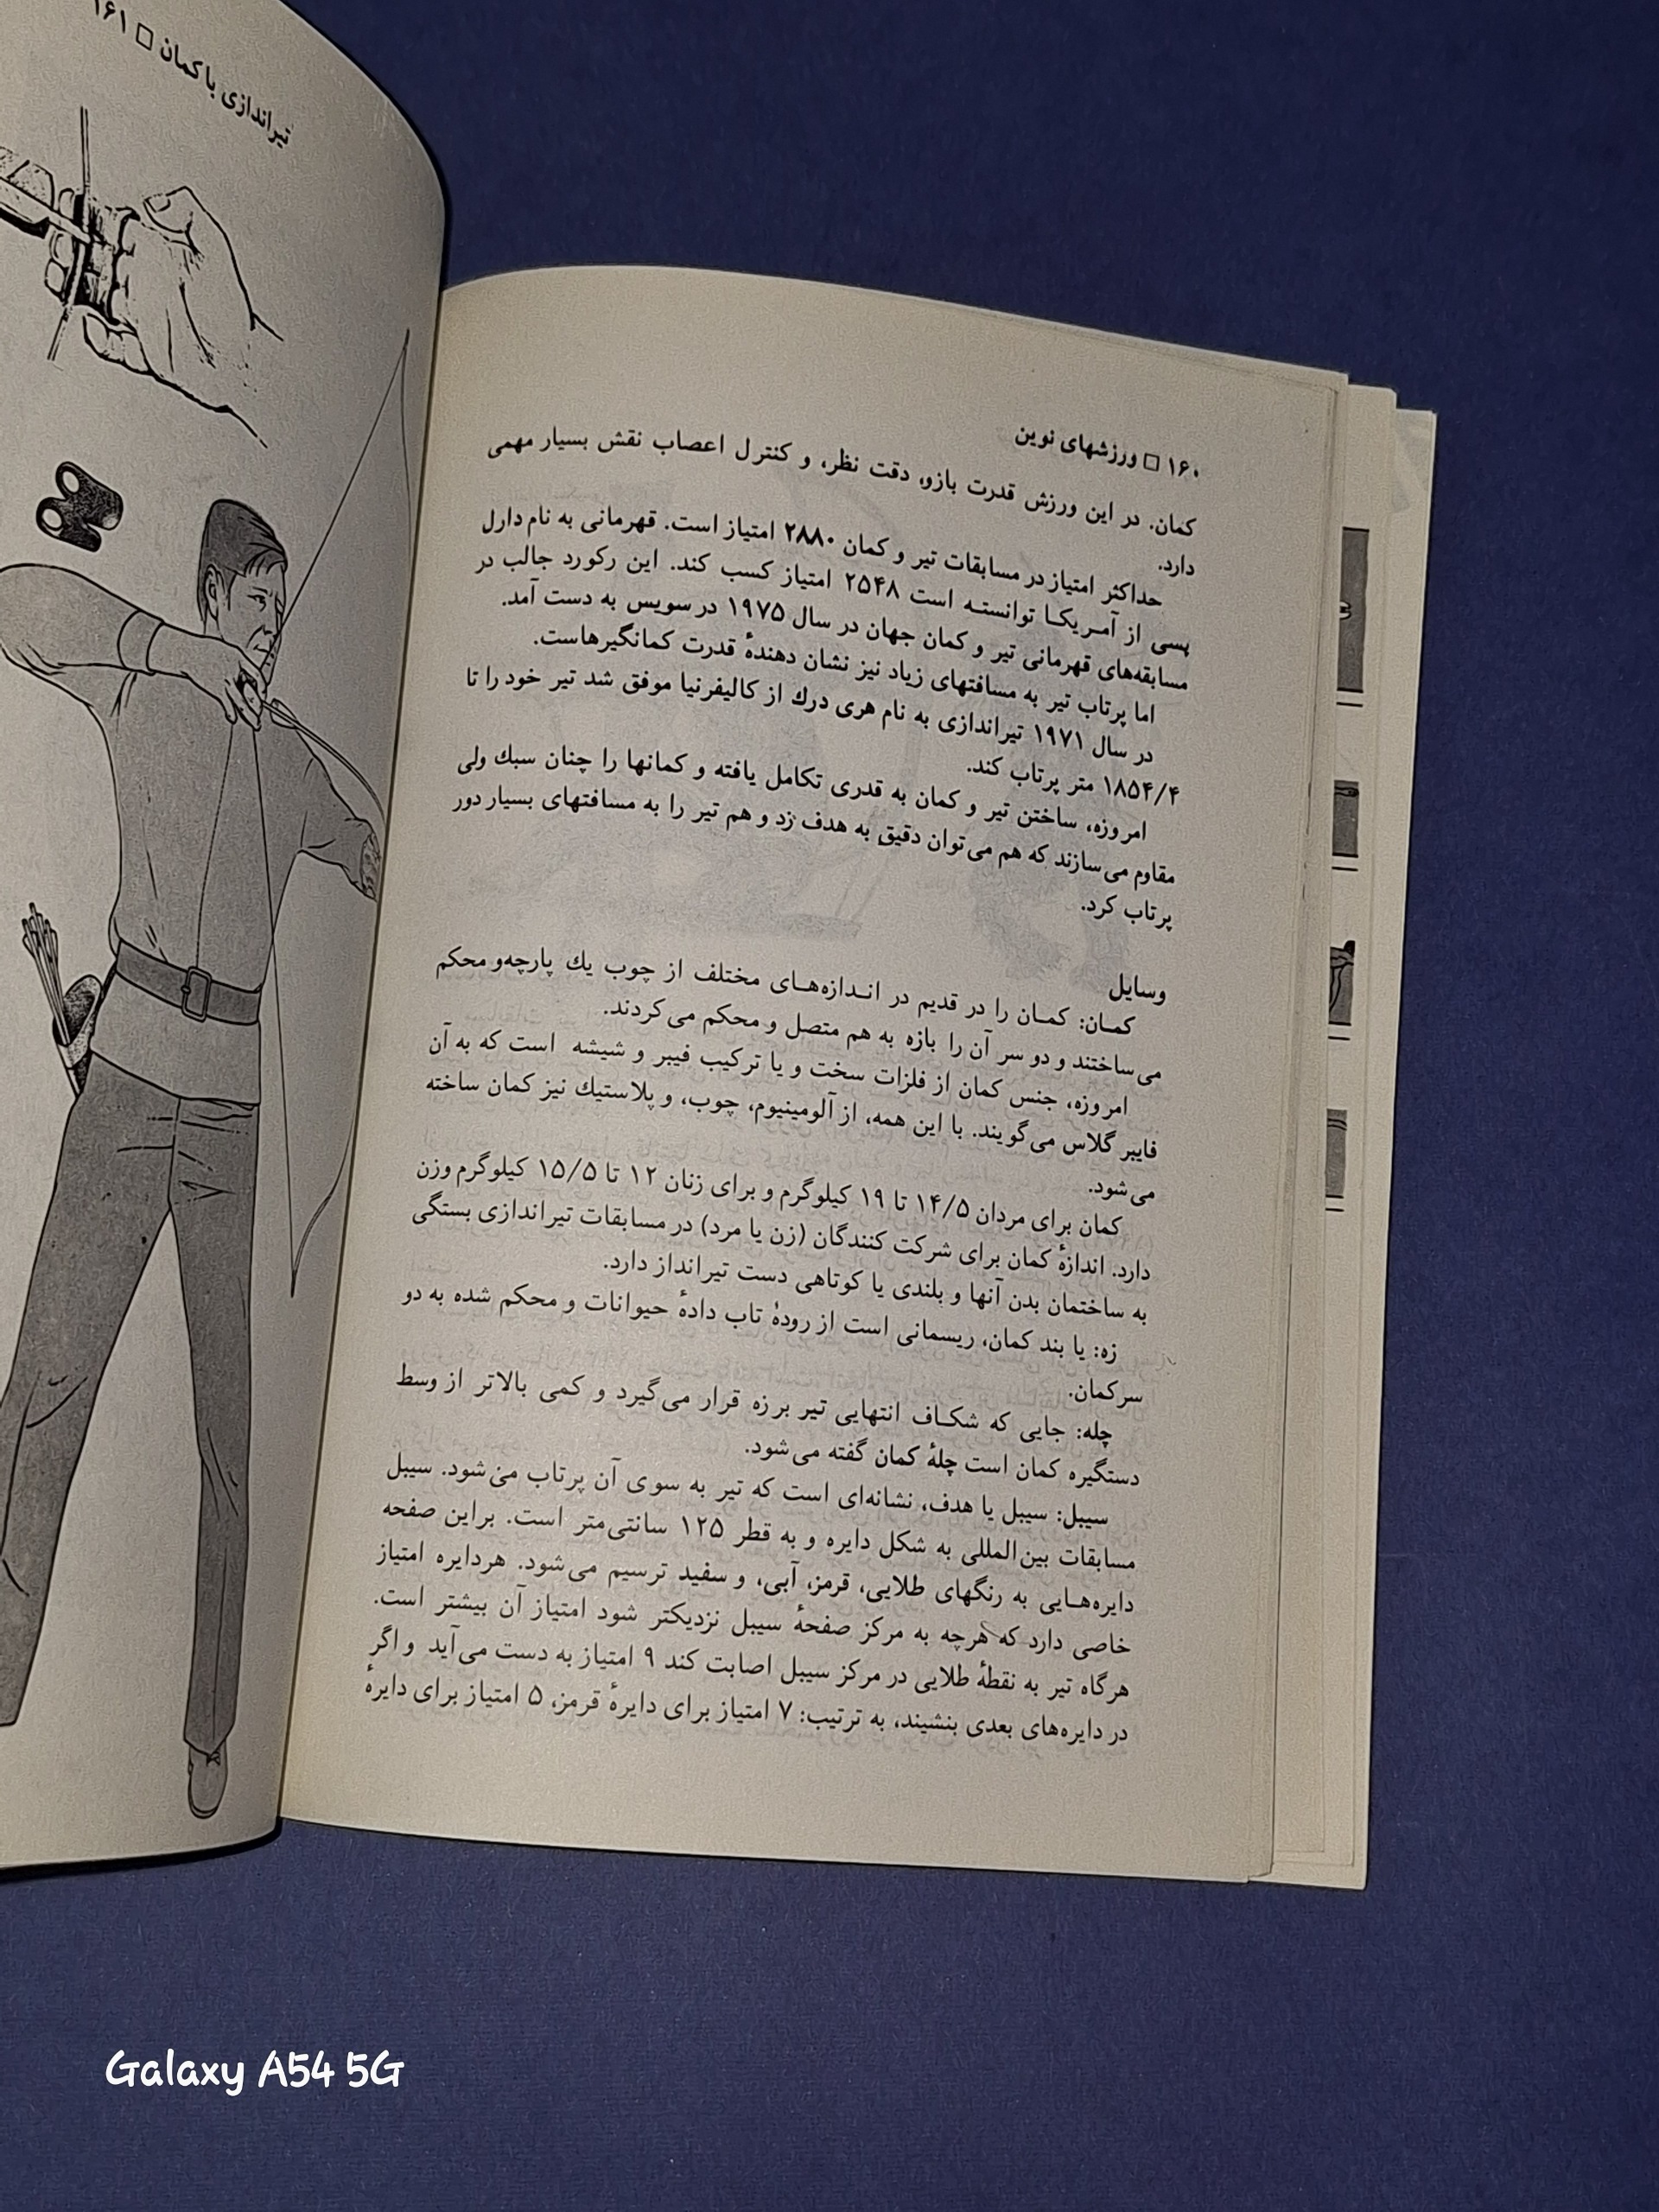 ۱۶۰ □ ورزشهای نوین
کمان. در این ورزش قدرت بازو، دقت نظر، و کنترل اعصاب نقش بسیار مهمی
دارد.
حداکثر امتیاز در مسابقات تیر و کمان ۲۸۸۰ امتیاز است. قهرمانی به نام دارل
پسی از آمریکا توانسته است ۲۵۴۸ امتیاز کسب کند. این رکورد جالب در
مسابقه‌های قهرمانی تیر و کمان جهان در سال ۱۹۷۵ در سویس به دست آمد.
اما پرتاب تیر به مسافتهای زیاد نیز نشان دهندهٔ قدرت کمانگیرهاست.
در سال ۱۹۷۱ تیراندازی به نام هری درك از کالیفرنیا موفق شد تیر خود را تا
۱۸۵۴/۴ متر پرتاب کند.
امروزه، ساختن تیر و کمان به قدری تکامل یافته و کمانها را چنان سبك ولی
مقاوم می‌سازند که هم می‌توان دقیق به هدف زد و هم تیر را به مسافتهای بسیار دور
پرتاب کرد.
وسایل
کمان: کمان را در قدیم در اندازه‌های مختلف از چوب یك پارچه و محکم
می‌ساختند و دو سر آن را بازه به هم متصل و محکم می‌کردند.
امروزه، جنس کمان از فلزات سخت و یا ترکیب فیبر و شیشه است که به آن
فایبر گلاس می‌گویند. با این همه، از آلومینیوم، چوب، و پلاستیك نیز کمان ساخته
می‌شود.
کمان برای مردان ۱۴/۵ تا ۱۹ کیلوگرم و برای زنان ۱۲ تا ۱۵/۵ کیلوگرم وزن
دارد. اندازهٔ کمان برای شرکت کنندگان (زن یا مرد) در مسابقات تیراندازی بستگی
به ساختمان بدن آنها و بلندی یا کوتاهی دست تیرانداز دارد.
زه: یا بند کمان، ریسمانی است از رودهٔ تاب دادهٔ حیوانات و محکم شده به دو
سرکمان.
چله: جایی که شکاف انتهایی تیر بر زه قرار می‌گیرد و کمی بالاتر از وسط
دستگیره کمان است چلهٔ کمان گفته می‌شود.
سیبل: سیبل یا هدف، نشانه‌ای است که تیر به سوی آن پرتاب می‌شود. سیبل
مسابقات بین‌المللی به شکل دایره و به قطر ۱۲۵ سانتی‌متر است. براین صفحه
دایره‌هایی به رنگهای طلایی، قرمز، آبی، و سفید ترسیم می‌شود. هردایره امتیاز
خاصی دارد که هرچه به مرکز صفحهٔ سیبل نزدیکتر شود امتیاز آن بیشتر است.
هرگاه تیر به نقطهٔ طلایی در مرکز سیبل اصابت کند ۹ امتیاز به دست می‌آید و اگر
در دایره‌های بعدی بنشیند، به ترتیب: ۷ امتیاز برای دایرهٔ قرمز، ۵ امتیاز برای دایرهٔ
تیراندازی با کمان □ ۱۶۱
Galaxy A54 5G